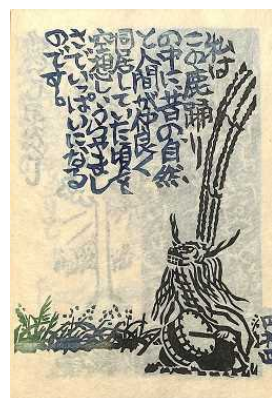 私は
この鹿踊り
の中に昔の自然
と人間が仲良く
同居していた頃を
空想しうらやまし
さでいっぱいになる
のです。